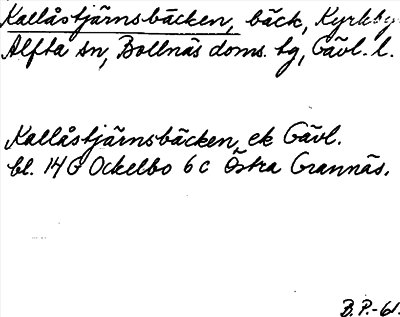 Kallåstjärnsbäcken, bäck, Kyrkby
Alfta sn, Bollnäs doms. tg, Gävl. l.
Kallåstjärnsbäcken, ek Gävl.
bl. 14 G Ockelbo 6 c Östra Grannäs.
B.P.-61.